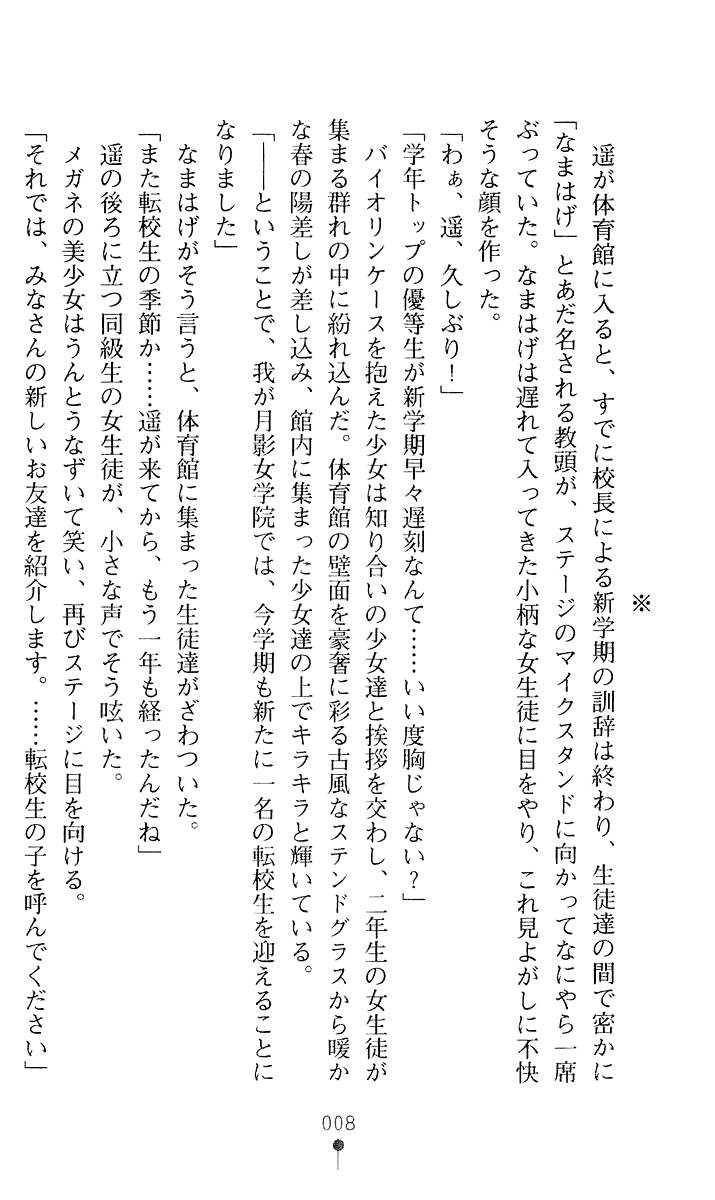 ※
遥が体育館に入ると、すでに校長による新学期の訓辞は終わり、生徒達の間で密かに
「なまはげ」とあだ名される教頭が、ステージのマイクスタンドに向かってなにやら一席
ぶっていた。なまはげは遅れて入ってきた小柄な女生徒に目をやり、これ見よがしに不快
そうな顔を作った。
「わぁ、遥、久しぶり！」
「学年トップの優等生が新学期早々遅刻なんて……いい度胸じゃない？」
バイオリンケースを抱えた少女は知り合いの少女達と挨拶を交わし、二年生の女生徒が
集まる群れの中に紛れ込んだ。体育館の壁面を豪奢に彩る古風なステンドグラスから暖か
な春の陽差しが差し込み、館内に集まった少女達の上でキラキラと輝いている。
「――ということで、我が月影女学院では、今学期も新たに一名の転校生を迎えることに
なりました」
なまはげがそう言うと、体育館に集まった生徒達がざわついた。
「また転校生の季節か……遥が来てから、もう一年も経ったんだね」
遥の後ろに立つ同級生の女生徒が、小さな声でそう呟いた。
メガネの美少女はうんとうなずいて笑い、再びステージに目を向ける。
「それでは、みなさんの新しいお友達を紹介します。……転校生の子を呼んでください」
008